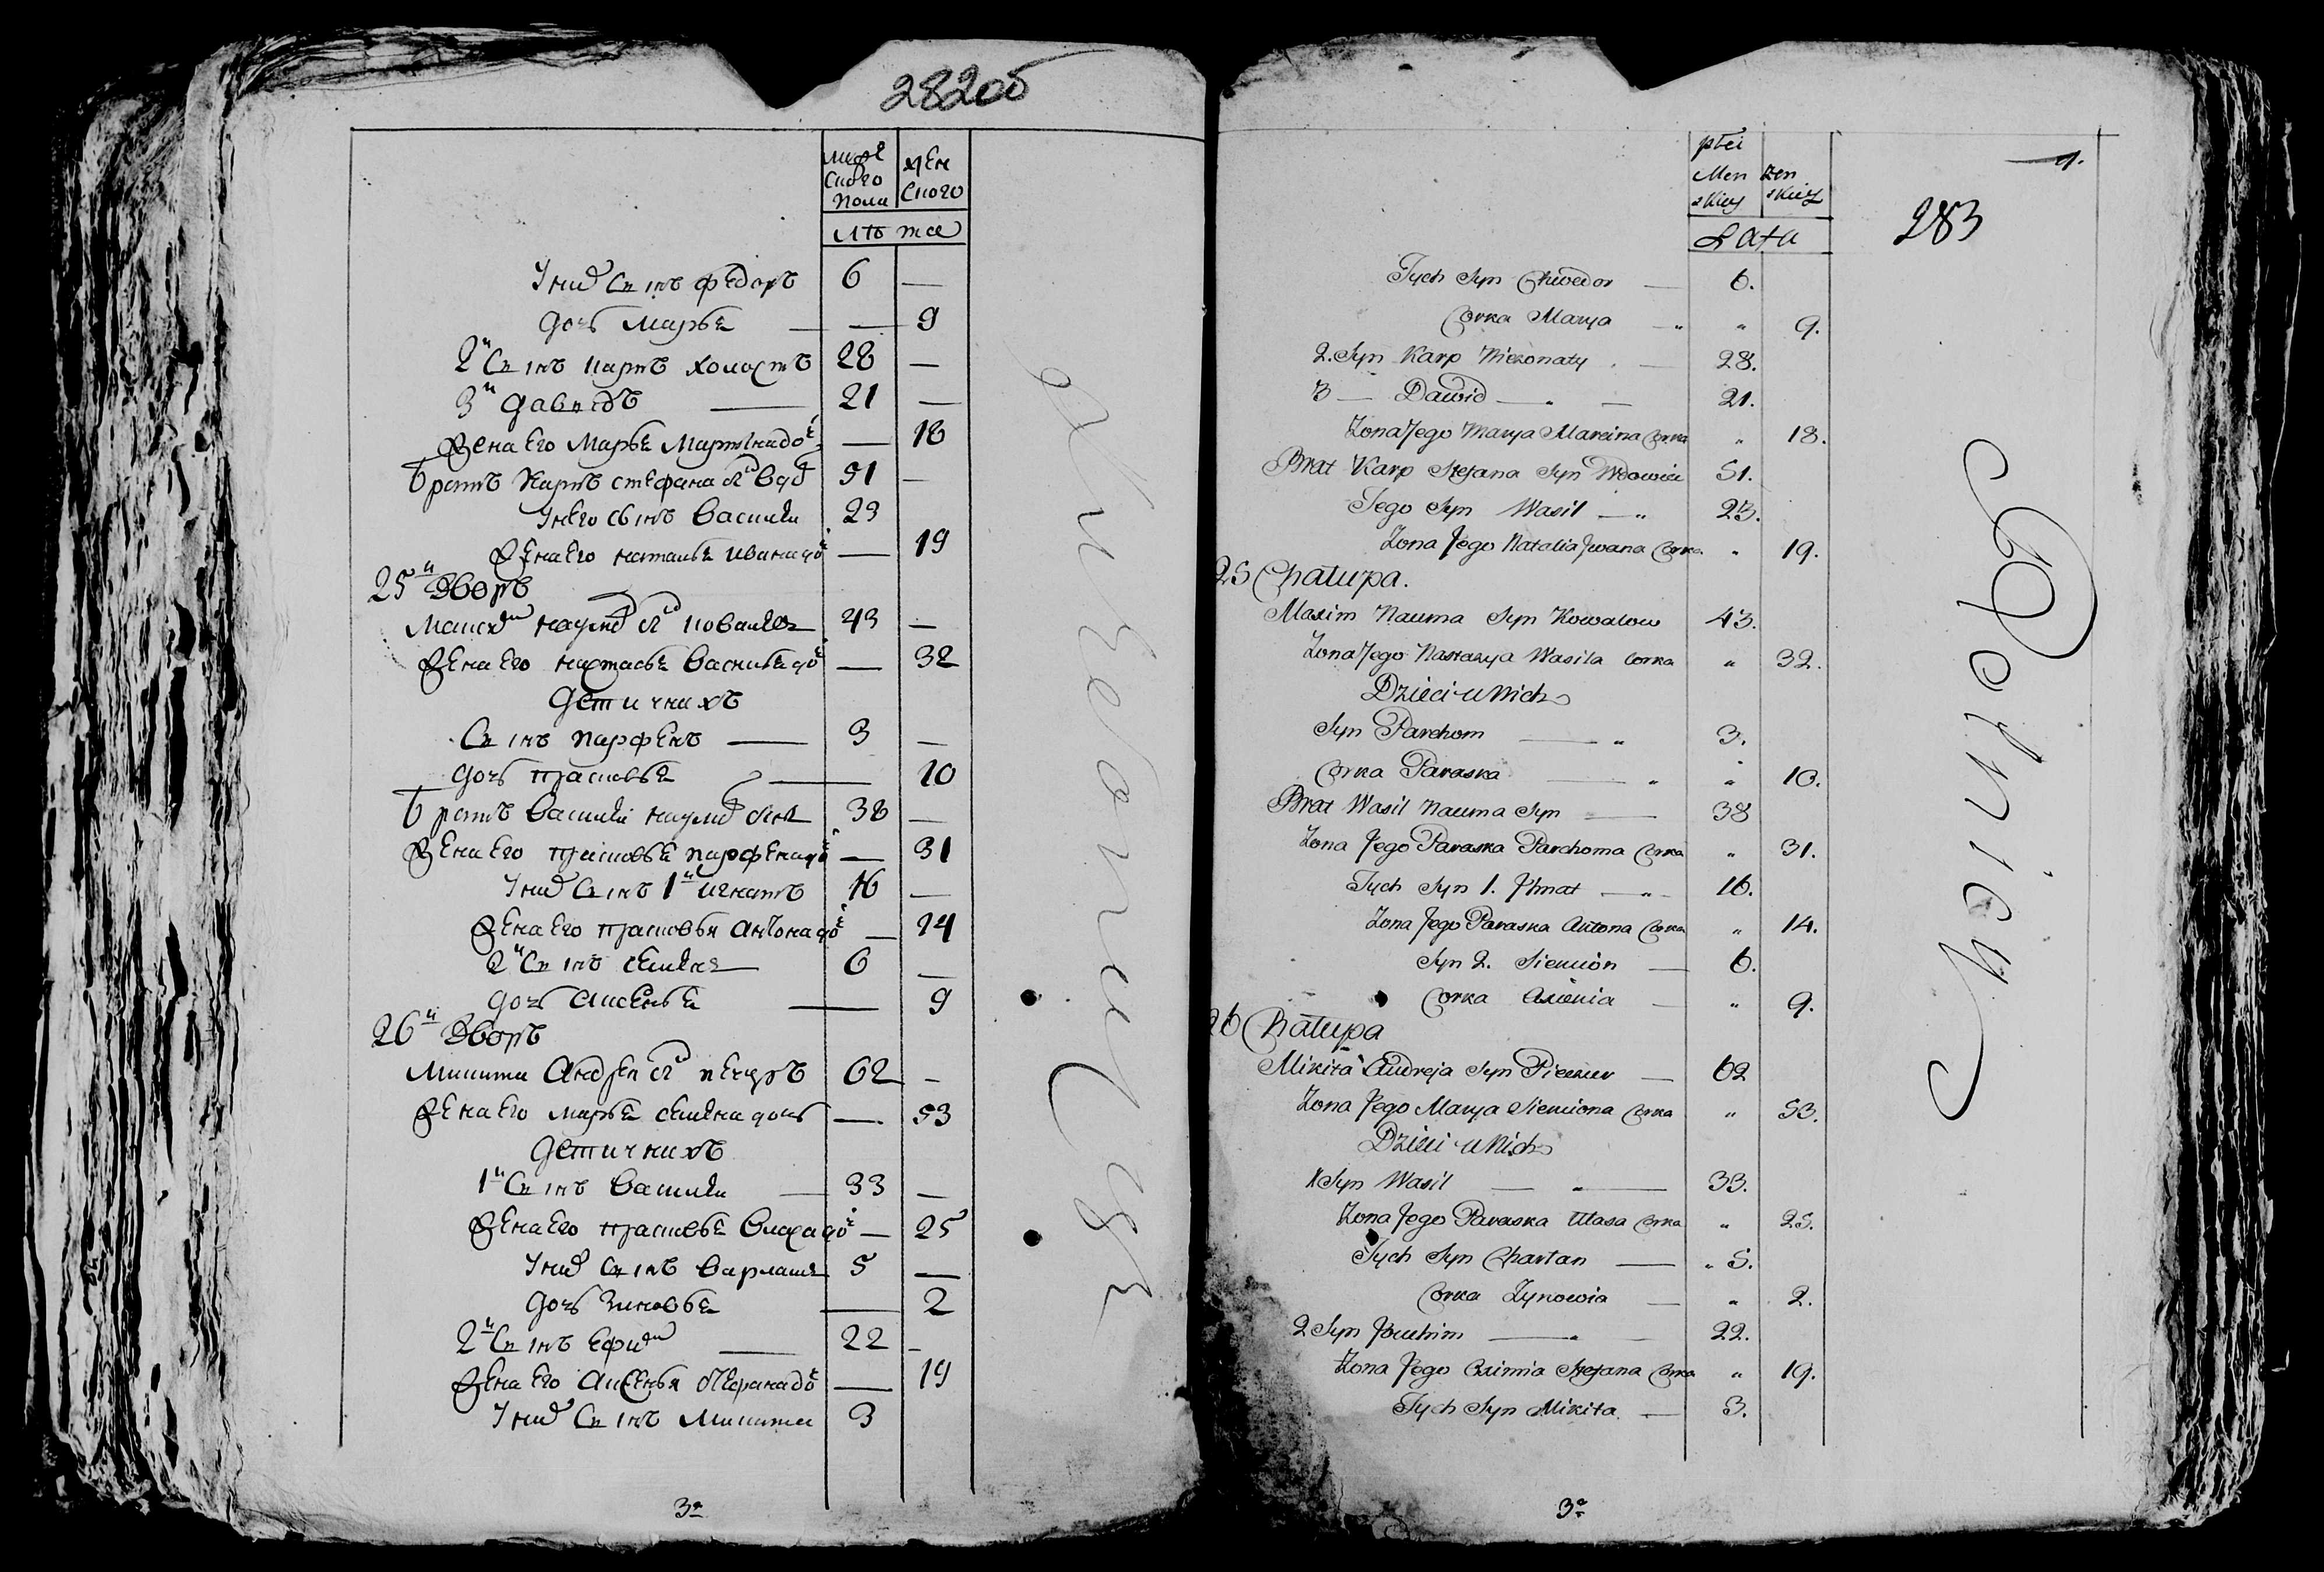 282об
мужескаго пола
женскаго
лѣта
У них сынъ Федоръ 6 —
дочь Марья — — 9
2й сынъ Карпъ холостъ 28 —
3й Давыдъ — 21 —
Жена его Марья Мартина до. — 18
Братъ Карпъ Стефана сы вдо 51 —
У него сынъ Василий 23
Жена его Наталья Ивана до. — 19
25й Дворъ
Максим Наумо сы Ковалев 43 —
Жена его Настасья Василья до — 32
Дети у нихъ
Сынъ Парфенъ — 3 —
дочь Прасковья — 10
Братъ Василий Наумо сын 38 —
Жена его Прасковья Парфена до — 31
У них сынъ 1й Игнатъ 16 —
Жена его Прасковья Антона до — 14
2й сынъ Семен 6 —
дочь Аксенья — 9
26й Дворъ
Микита Андрея сы Пекуръ 62 —
Жена его Марья Семена дочь — 53
Дети у нихъ
1й сынъ Василий — 33 —
Жена его Прасковья Власа до — 25
У них сынъ Варлам 5 —
дочь Зиновья — 2
2й сынъ Ефим — 22 —
Жена его Аксенья Стефана до — 19
У них сынъ Микита 3
3а
płci
Men skiey
żen skiey
Lata
283
Tych Syn Chwedor — 6.
Corka Marya — " " 9.
2. Syn Karp Nieżonaty — 28.
3 — Dawid — " — 21.
Zona Jego Marya Marcina Corka " 18.
Brat Karp Stefana Syn Wdowiec 51.
Jego Syn Wasil — " 23.
Zona Jego Natalia Jwana Corka " 19.
25 Chałupa.
Maxim Nauma Syn Kowalow 43.
Zona Jego Nastazya Wasila Corka " 32.
Dzieci u Nich
Syn Parchom — " 3.
Corka Paraska — " " 10.
Brat Wasil Nauma Syn — 38
Zona Jego Paraska Parchoma Corka " 31.
Tych Syn 1. Jhnat — " 16.
Zona Jego Paraska Antona Corka " 14.
Syn 2. Siemion — 6.
Corka Axienia — " 9.
26 Chałupa
Mikita Andreja Syn Piekur — 62
Zona Jego Marya Siemiona Corka " 53.
Dzieci u Nich
1 Syn Wasil — " — 33.
Zona Jego Paraska Ułasa Corka " 25.
Tych Syn Chartan — " 5.
Corka Zynowia — " 2.
2 Syn Jouchim — " — 22.
Zona Jego Axinia Stefana Corka " 19.
Tych Syn Mikita — 3.
3a